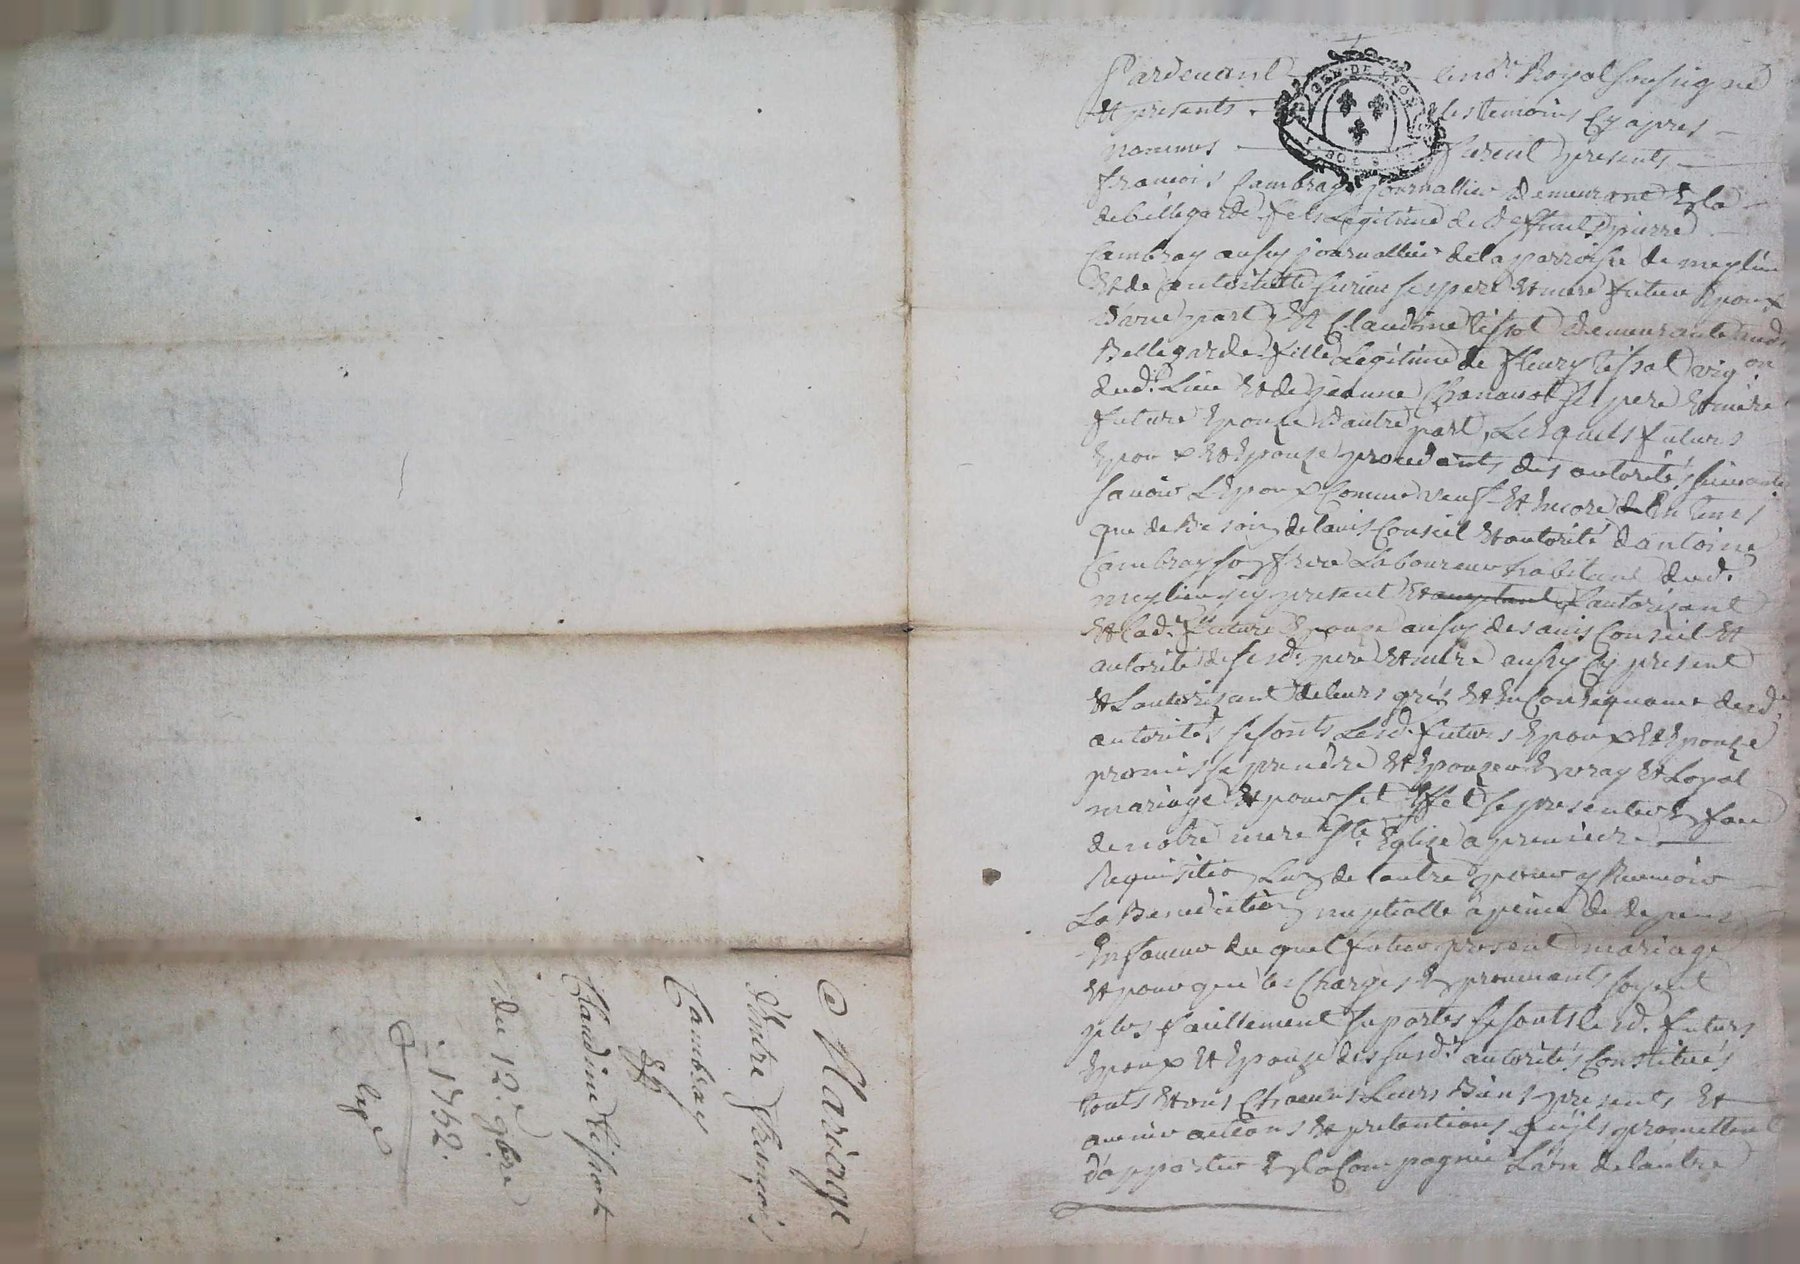 Pardevant le no.re Royal soussigné
Et presents les temoins Cy apres
nommes furent presents
francois Cambray Journallier demeurant En la
de bellegarde fils Legitime de deffunt pierre
Cambray aussy journallier de la parroisse de meylieu
Et de antoinette ses pere Et mere futur Epoux
d'une part, Et Claudine tissot demeurante aud.
Bellegarde fille Legitime de fleury tissot vigon
dud. Lieu Et de jeanne Chanavat ses pere Et mere
future Epouze d'autre part, Lesquels futurs
Epoux Et Epouze procedants des autorités suivantes
savoir L'Epoux Comme veuf Et Encore En tems
que de Besoin de lavis Conseil Et autorité d'antoine
Cambray son frere Laboureur habitant dud.
meylieu jcy present Et acceptant L'autorisant
Et lad. future Epouze aussy de lavis Conseil Et
autorité de sesd. pere Et mere aussy Cy present
Et Lautorizant de leurs grés Et En Consequance desd.
autorités se sonts Lesd. futurs Epoux Et Epouze
promis se prendre Et Epouzer En vray Et Loyal
mariage Et pour set Effet se presenter En face
de notre mere Ste Eglize a premiere
Requisition Lun de lautre pour y Recevoir
La Benediction nuptialle a peine de depens
En faveur du quel futur present mariage
Et pour que les Charges En provenants soyent
plus facillement suportés se sonts lesd. futurs
Epoux Et Epouze des susd. autorités Constitués
touts Et uns Chacuns Leurs Biens presents Et
avenir actions Et pretentions qu'jls promettent
d'apporter En la Compagnie L'un de lautre
Mariage
d'Entre françois
Cambray
Et
Claudine tissot
du 12.e 9bre
1752.
Exp.é